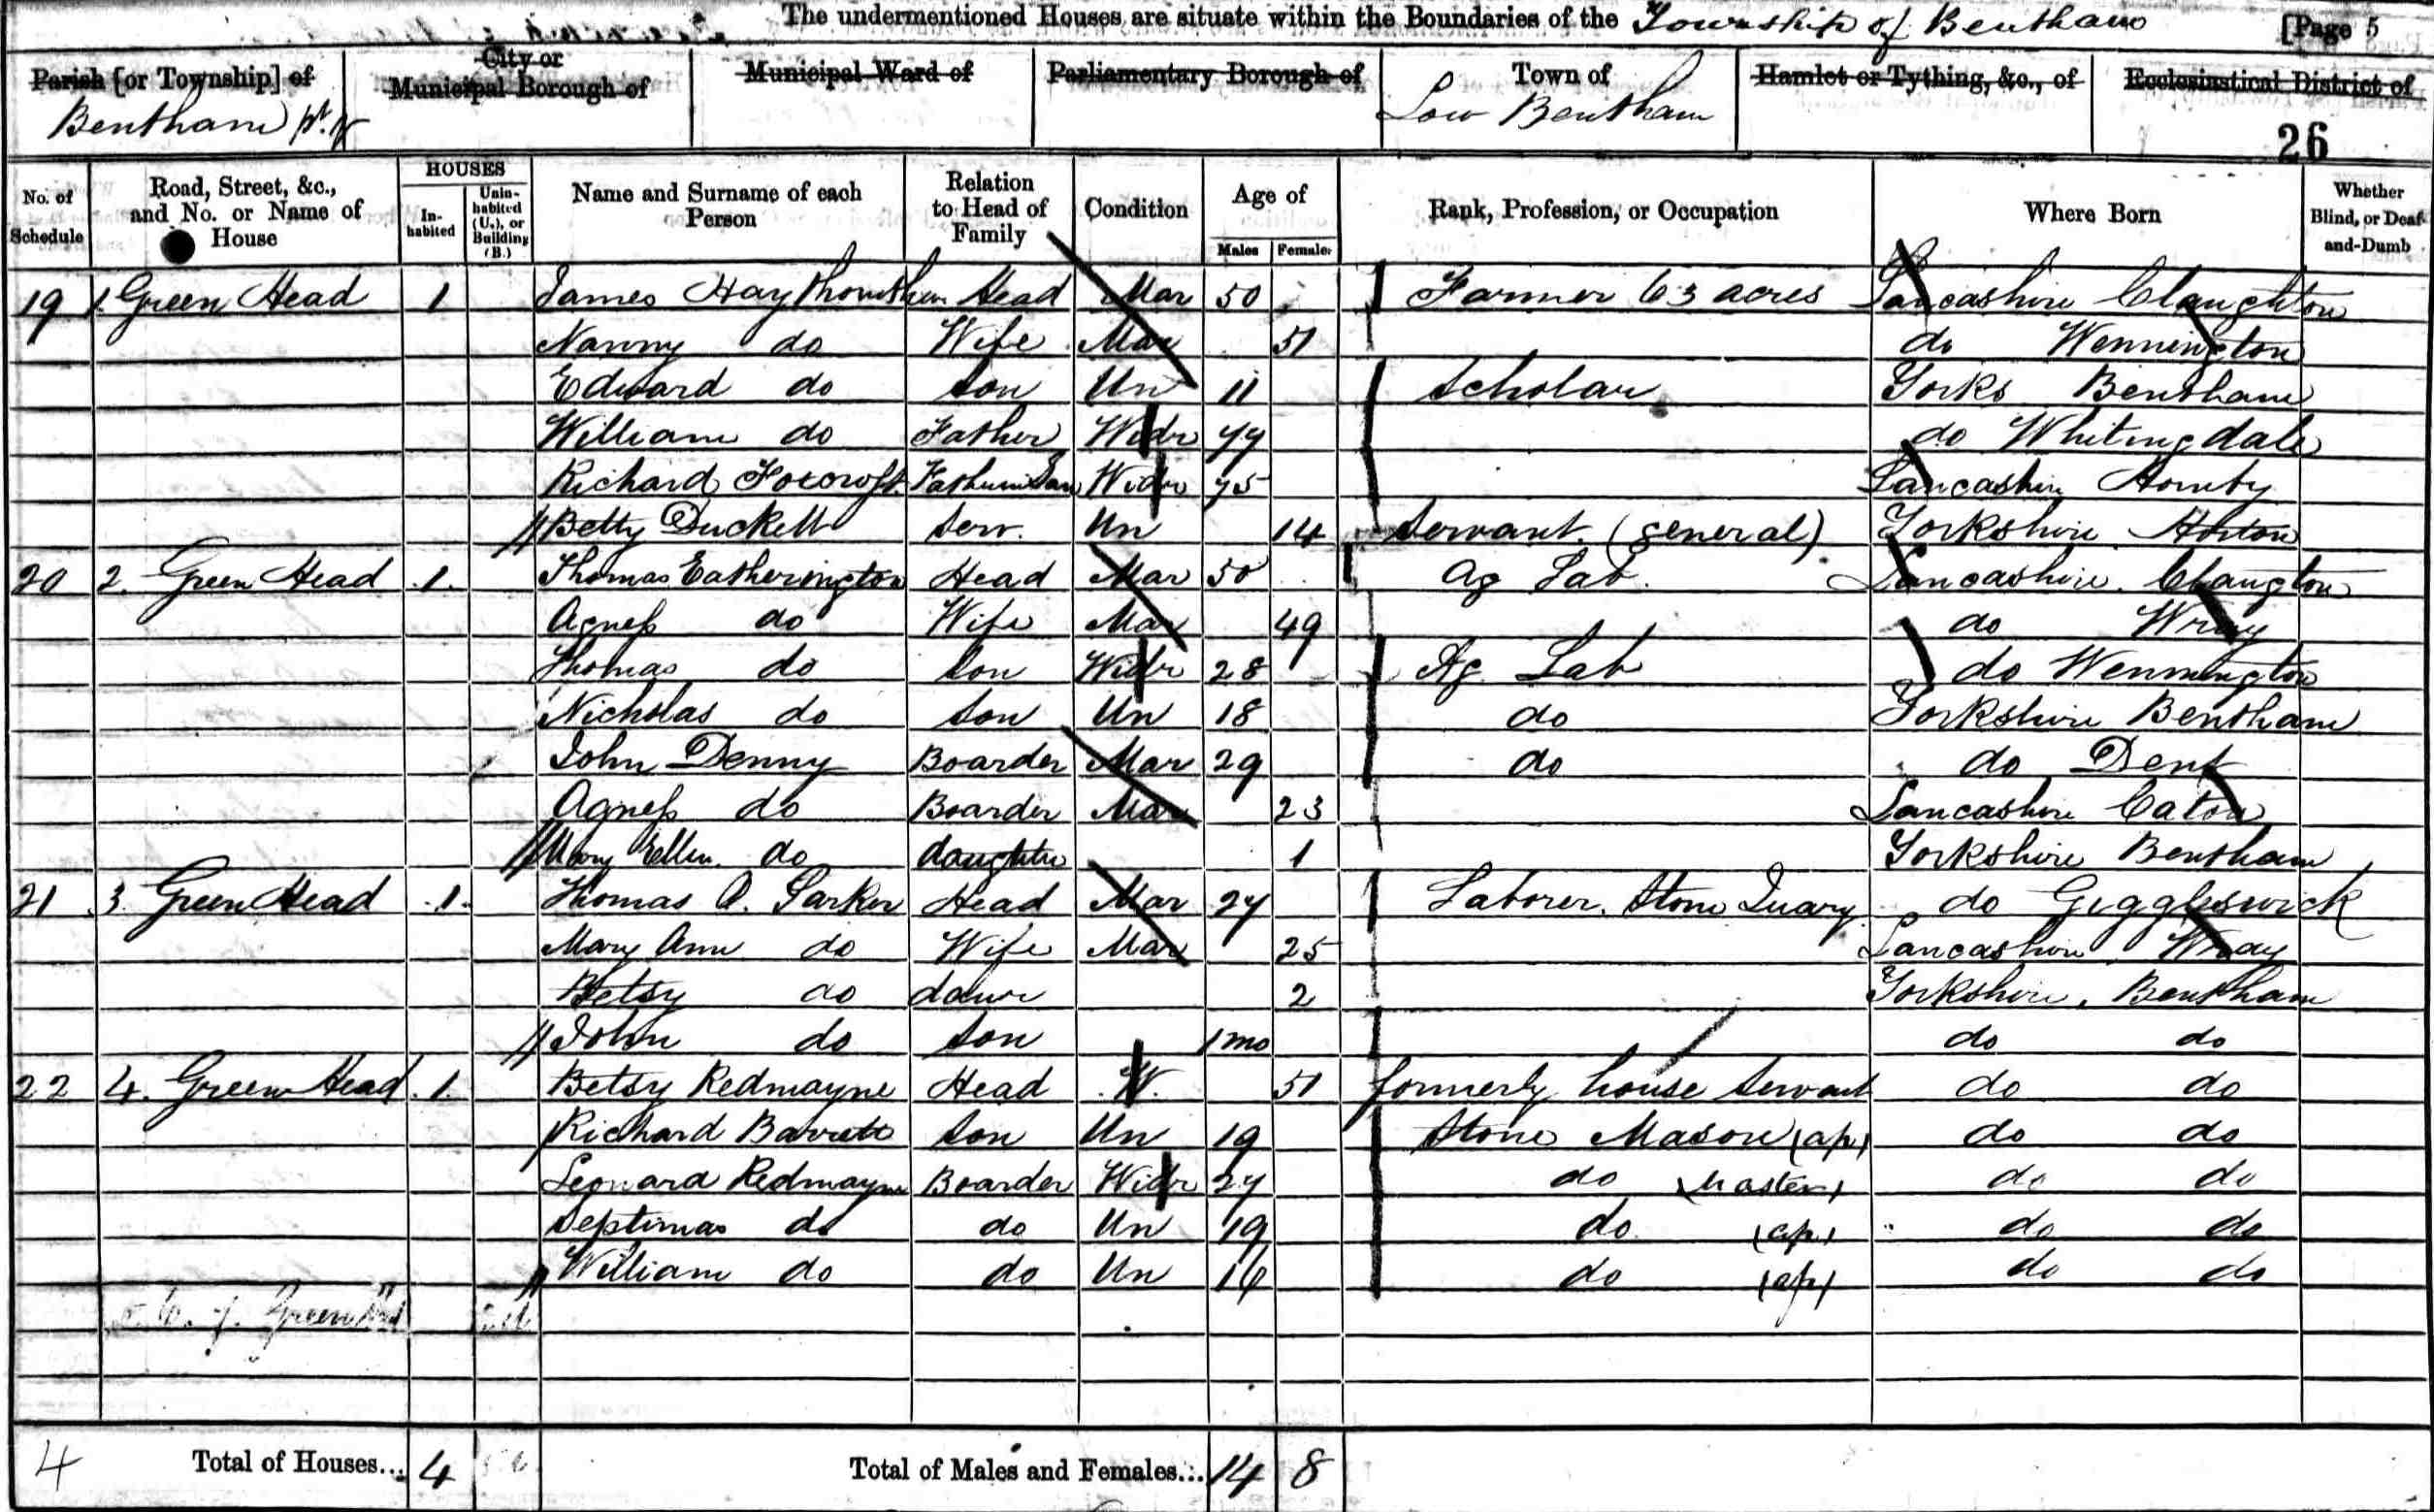 The undermentioned Houses are situate within the Boundaries of the Township of Bentham [Page 5
Parish [or Township] of City or Municipal Borough of Municipal Ward of Parliamentary Borough of Town of Hamlet or Tything, &c., of Ecclesiastical District of
Bentham pt. of Low Bentham
26
No. of Schedule Road, Street, &c., and No. or Name of House HOUSES Inhabited Uninhabited (U.), or Building (B.) Name and Surname of each Person Relation to Head of Family Condition Age of Males Females Rank, Profession, or Occupation Where Born Whether Blind, or Deaf-and-Dumb
19 1 Green Head 1 James Haythornthwaite Head Mar 50 Farmer 63 acres Lancashire Claughton
Nanny do Wife Mar 51 do Wennington
Edward do Son Un 11 Scholar Yorks Bentham
William do Father Widr 79 do Whitingdale
Richard Foxcroft Widr 75 Lancashire Hornby
Betty Duckett Serv. Un 14 Servant (general) Yorkshire Horton
20 2. Green Head 1 Thomas Eatherington Head Mar 50 Ag Lab. Lancashire Claugton
Agness do Wife Mar 49 do Wray
Thomas do Son Widr 28 Ag Lab do Wennington
Nicholas do Son Un 18 do Yorkshire Bentham
John Denny Boarder Mar 29 do do Dent
Agness do Boarder Mar 23 Lancashire Caton
Mary Ellen do daughter 1 Yorkshire Bentham
21 3 Green Head 1 Thomas A. Parker Head Mar 27 Laborer. Stone Quary do Giggleswick
Mary Ann do Wife Mar 25 Lancashire Wray
Betsy do daur 2 Yorkshire, Bentham
John do Son 1 mo do do
22 4. Green Head 1 Betsy Redmayne Head W. 51 formerly house servant do do
Richard Barrett Son Un 19 Stone Mason (ap) do do
Leonard Redmayne Boarder Widr 27 do (Master) do do
Septimas do do Un 19 do (ap) do do
William do do Un 16 do (ap) do do
4 Total of Houses... 4 Total of Males and Females... 14 8